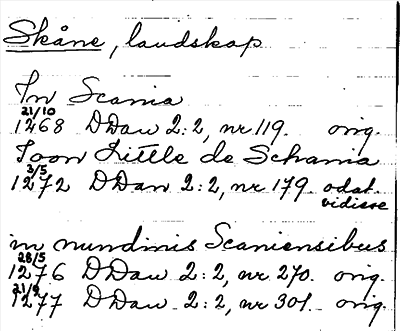 Skåne, landskap
In Scania
21/10
1268 DDan 2:2, nr 119. orig.
Toon Little de Schania
3/5
1272 DDan 2:2, nr 179. odat.
vidisse
in nundinis Scaniensibus
28/5
1276 DDan 2:2, nr 270. orig.
21/9
1277 DDan 2:2, nr 301. orig.